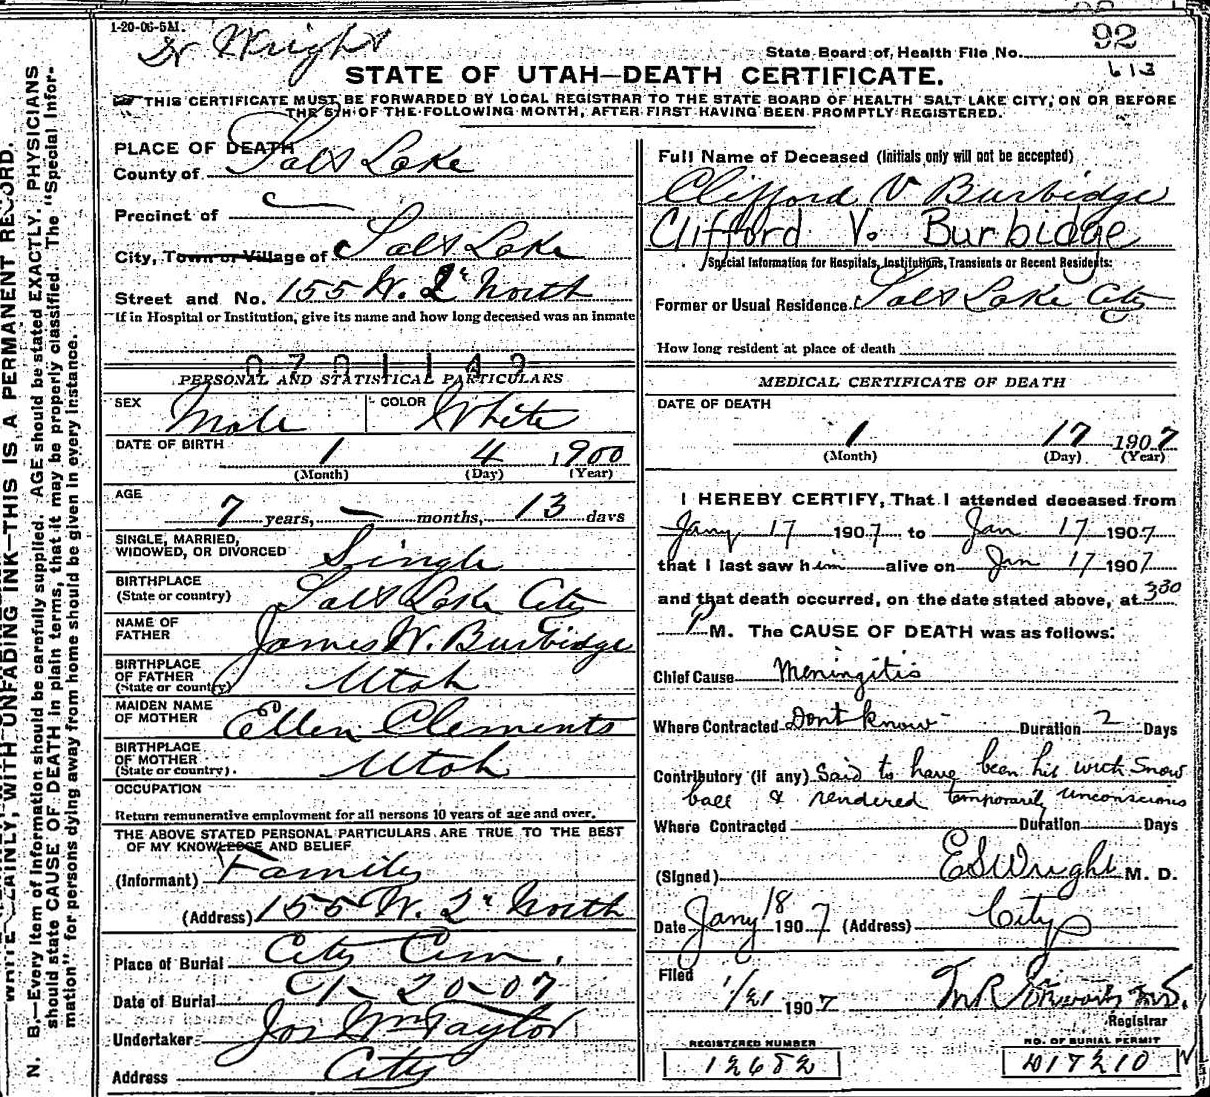 1-20-06-5M.
Dr Wright
92
State Board of Health File No.
613
STATE OF UTAH—DEATH CERTIFICATE.
THIS CERTIFICATE MUST BE FORWARDED BY LOCAL REGISTRAR TO THE STATE BOARD OF HEALTH SALT LAKE CITY, ON OR BEFORE
THE 5TH OF THE FOLLOWING MONTH, AFTER FIRST HAVING BEEN PROMPTLY REGISTERED.
PLACE OF DEATH
County of Salt Lake
Precinct of —
City, Town or Village of Salt Lake
Street and No. 155 W. 2d North
If in Hospital or Institution, give its name and how long deceased was an inmate
0701149
PERSONAL AND STATISTICAL PARTICULARS
SEX Male COLOR White
DATE OF BIRTH
1 4 1900
(Month) (Day) (Year)
AGE
7 years, — months, 13 days
SINGLE, MARRIED,
WIDOWED, OR DIVORCED Single
BIRTHPLACE
(State or country) Salt Lake City
NAME OF
FATHER James W. Burbidge
BIRTHPLACE
OF FATHER
(State or country) Utah
MAIDEN NAME
OF MOTHER Ellen Clements
BIRTHPLACE
OF MOTHER
(State or country). Utah
OCCUPATION
Return remunerative employment for all persons 10 years of age and over.
THE ABOVE STATED PERSONAL PARTICULARS ARE TRUE TO THE BEST
OF MY KNOWLEDGE AND BELIEF
(Informant) Family
(Address) 155 W. 2d North
Place of Burial City Cem.
Date of Burial 1-20-07
Undertaker Jos Wm Taylor
Address City
Full Name of Deceased (Initials only will not be accepted)
Clifford V Burbidge
Clifford V. Burbidge
Special Information for Hospitals, Institutions, Transients or Recent Residents:
Former or Usual Residence Salt Lake City
How long resident at place of death
MEDICAL CERTIFICATE OF DEATH
DATE OF DEATH
1 17 1907
(Month) (Day) (Year)
I HEREBY CERTIFY, That I attended deceased from
Jany 17 1907 to Jan 17 1907
that I last saw him alive on Jan 17 1907
and that death occurred, on the date stated above, at 330
P M. The CAUSE OF DEATH was as follows:
Chief Cause Meningitis
Where Contracted Dont know Duration 2 Days
Contributory (if any) Said to have been hit with Snow
ball & rendered temporarily unconscious
Where Contracted Duration Days
(Signed) E S Wright M. D.
Date Jany 18 1907 (Address) City
Filed
1/21 1907
Registrar
REGISTERED NUMBER
12682
NO. OF BURIAL PERMIT
D17210
WITH UNFADING INK—THIS IS A PERMANENT RECORD.
N. B.—Every item of information should be carefully supplied. AGE should be stated EXACTLY. PHYSICIANS
should state CAUSE OF DEATH in plain terms, that it may be properly classified. The "Special Infor-
mation" for persons dying away from home should be given in every instance.